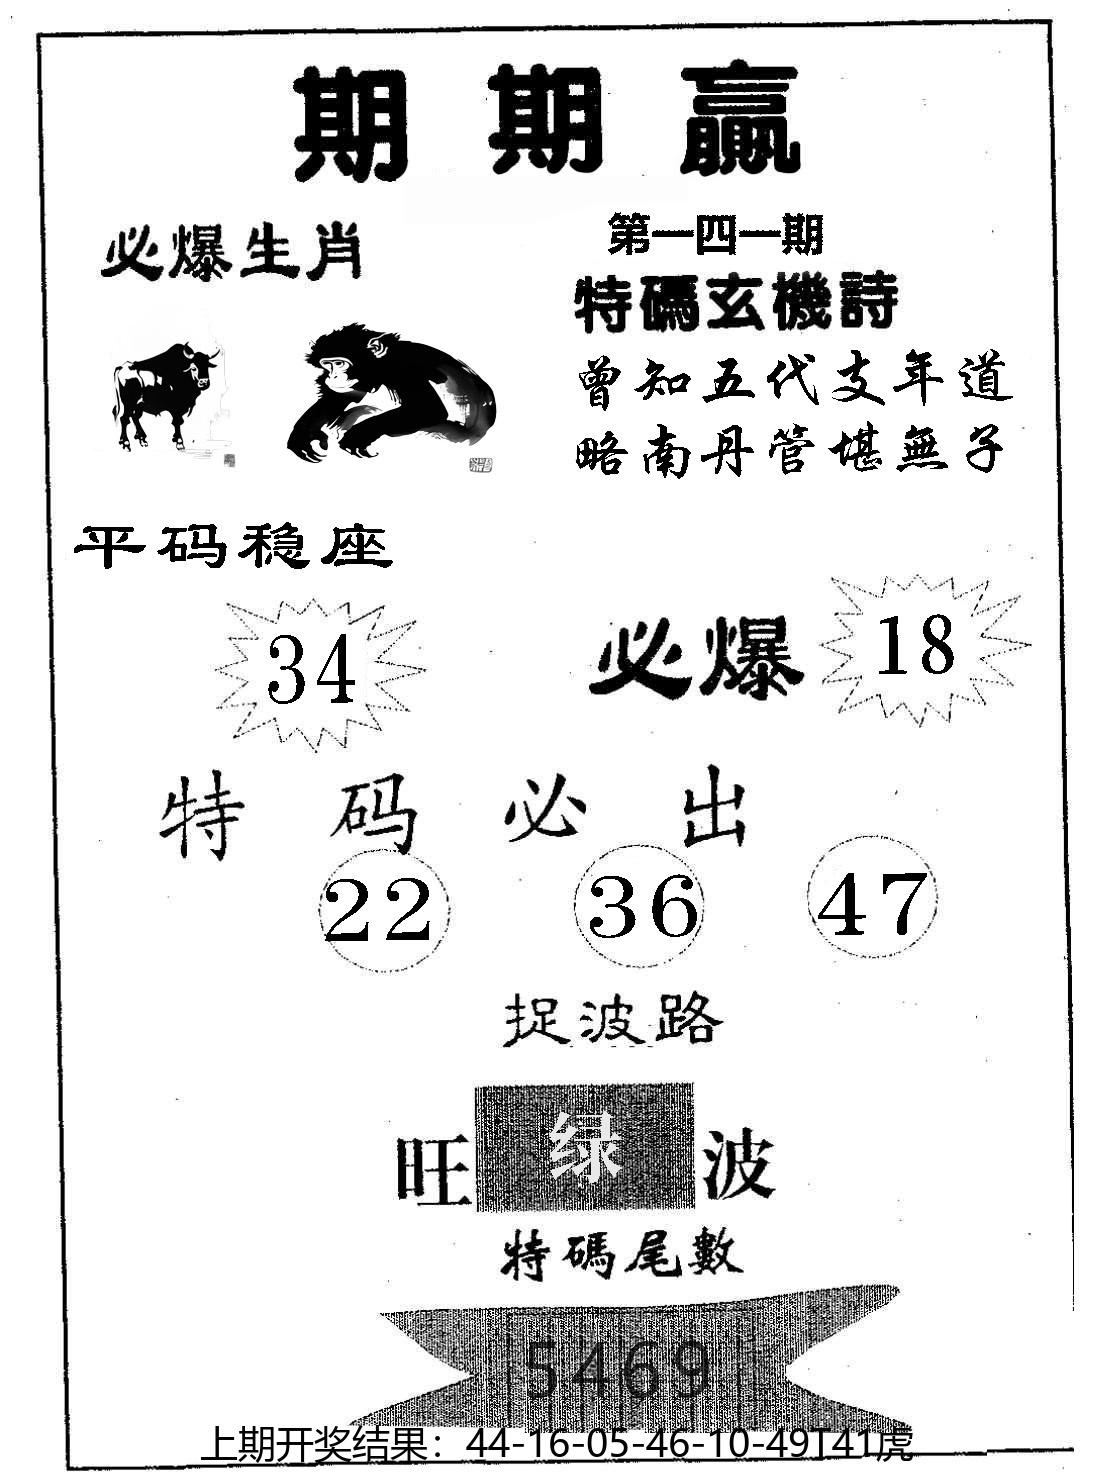 期期赢
必爆生肖
第一四一期
特碼玄機詩
曾知五代支年道
略南丹管堪無子
平码稳座
34
必爆
18
特码必出
22 36 47
捉波路
旺绿波
特碼尾數
5469
上期开奖结果：44-16-05-46-10-49T41虎